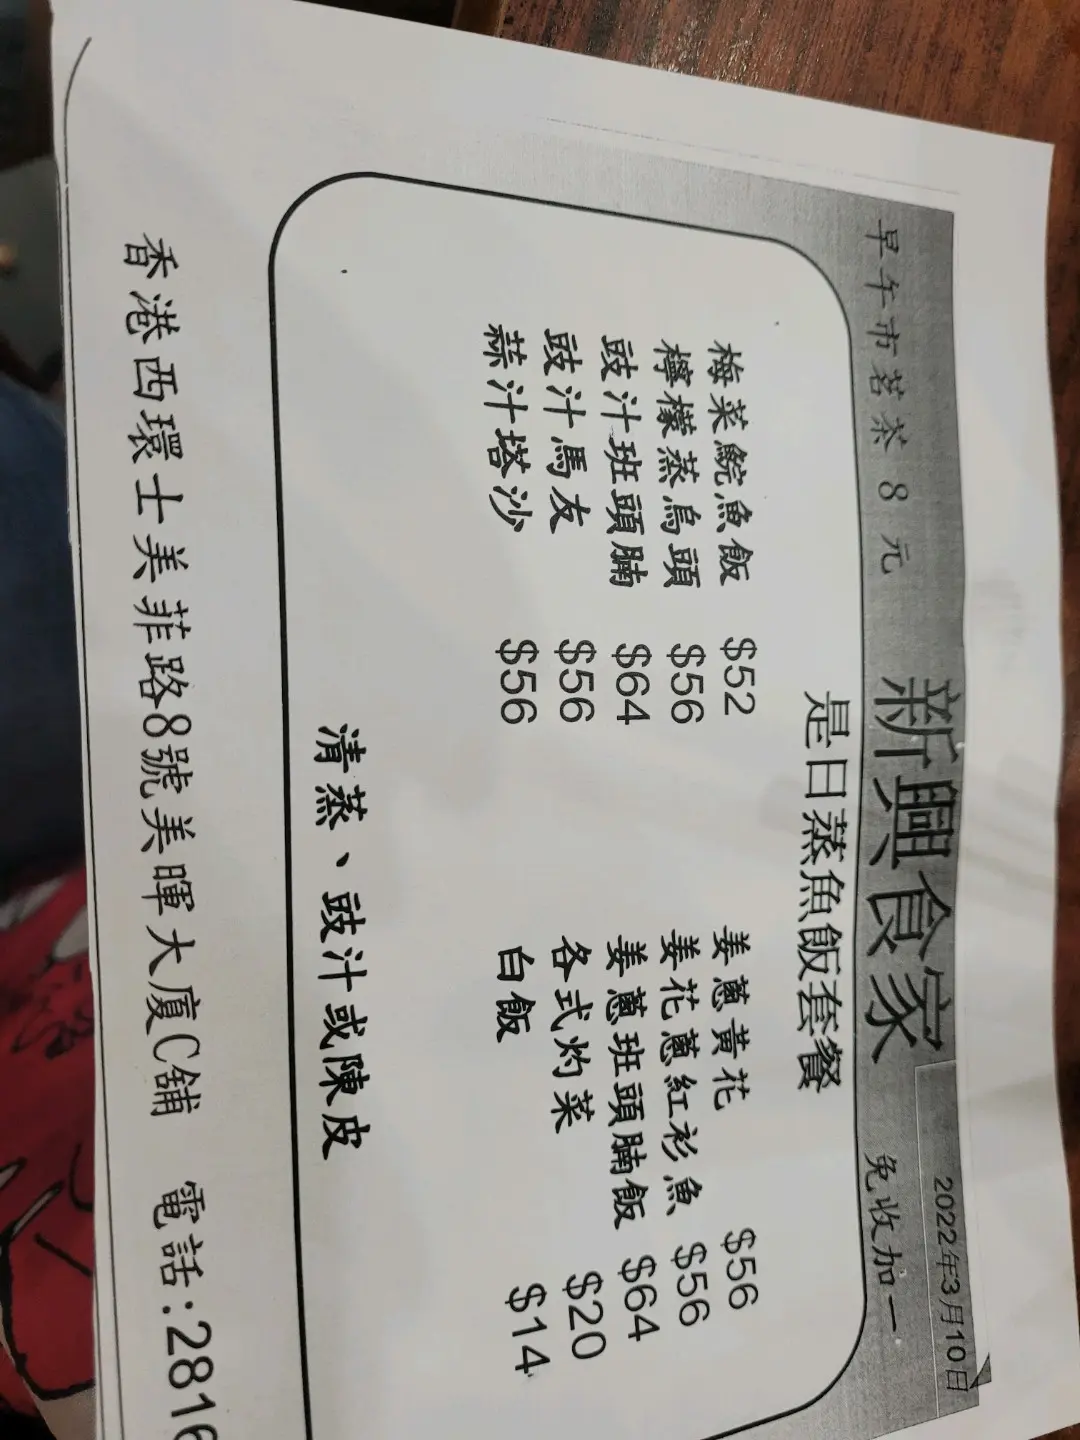 2022年3月10日
早午市茗茶8元 新興食家 免收加一
是日蒸魚飯套餐
梅菜鯇魚飯 $52 姜蔥黃花 $56
檸檬蒸烏頭 $56 姜花蔥紅衫魚 $56
豉汁班頭腩 $64 姜蔥班頭腩飯 $64
豉汁馬友 $56 各式灼菜 $20
蒜汁塔沙 $56 白飯 $14
清蒸、豉汁或陳皮
香港西環士美菲路8號美暉大廈C舖 電話:2816